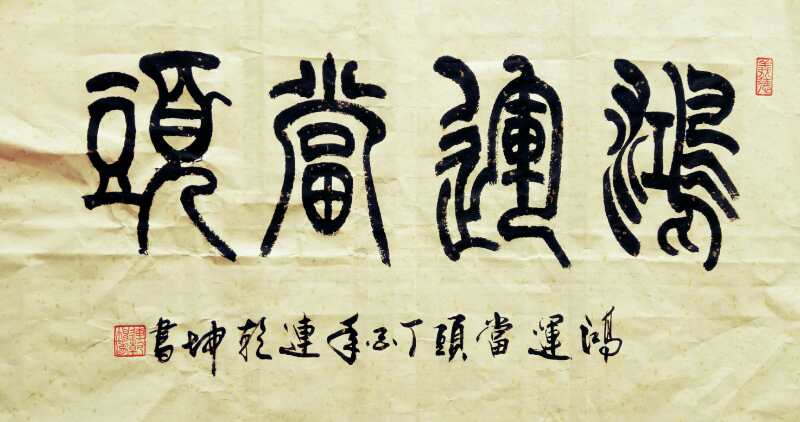 鴻運當頭
鴻運當頭丁酉年連乾坤書